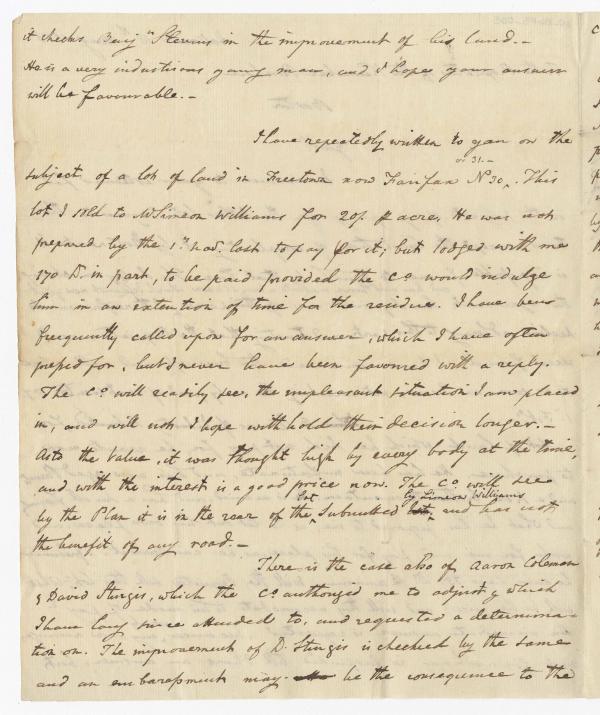 it checks Benj.n Stevens in the improvement of his land.–
He is a very industrious young man, and I hope your answer
will be favourable.–
I have repeatedly written to you on the
subject of a lot of land in Freetown now Fairfax No 30 or 31.–. This
lot I sold to Mr Simeon Williams for 20/ p acre. He was not
prepared by the 1st Nov. last to pay for it; but lodged with me
170 D. in part, to be paid provided the Co would indulge
him in an extention of time for the residue. I have been
frequently called upon for an answer, which I have often
pressed for, but I never have been favoured with a reply.
The Co will readily see, the unpleasant situation I am placed
in, and will not I hope withhold their decision longer.–
As to the value, it was thought high by every body at the time,
and with the interest is a good price now. The Co will see
by the Plan it is in the rear of the Lot submitted by Simeon Williams and has not
the benefit of any road.–
There is the case also of Aaron Coleman
& David Sturgis, which the Co authorized me to adjust, & which
I have long since attended to, and requested a determina-
tion on. The improvement of D. Sturgis is checked by the same
and an embarassment may be the consequence to the